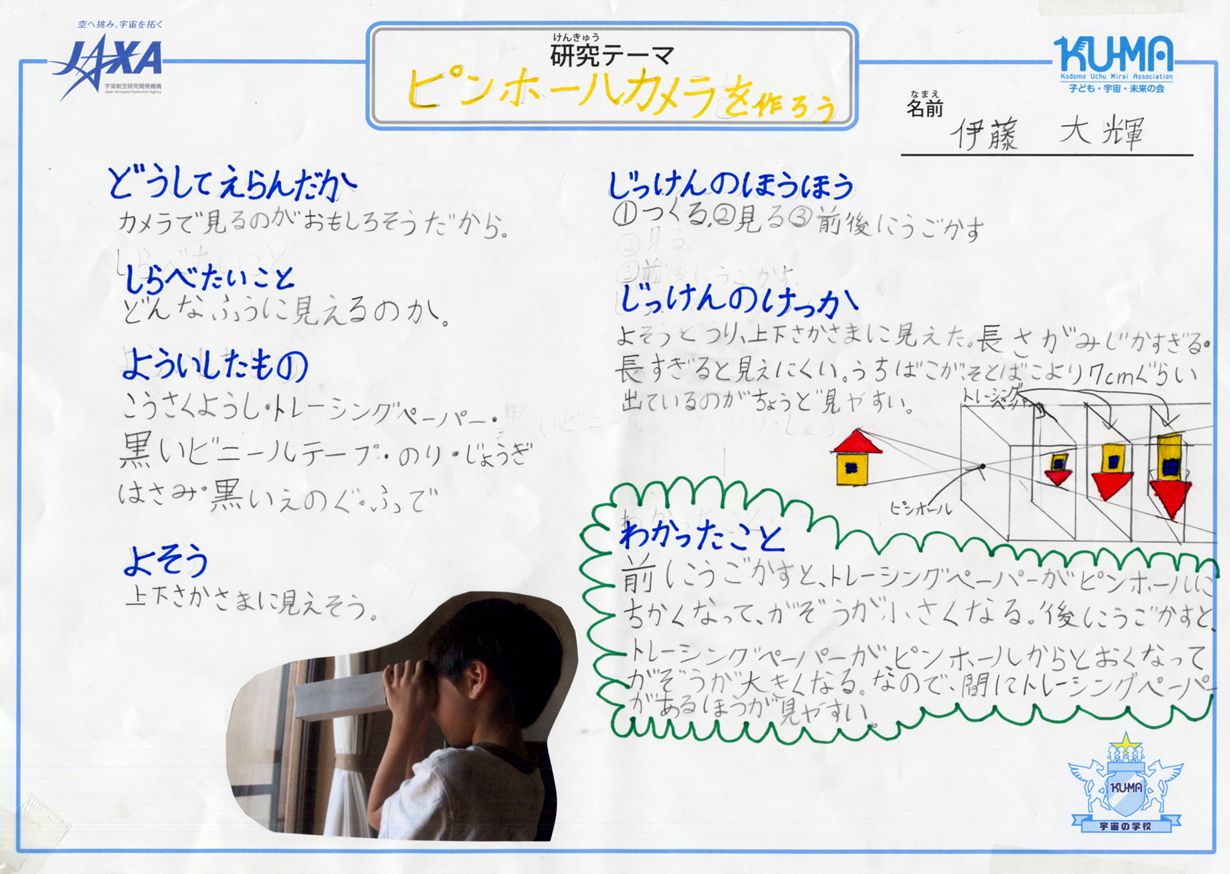 空へ挑み、宇宙を拓く
JAXA
宇宙航空研究開発機構
Japan Aerospace Exploration Agency
けんきゅう
研究テーマ
ピンホールカメラを作ろう
KU-MA
Kodomo Uchu Mirai Association
子ども・宇宙・未来の会
なまえ
名前
伊藤 大輝
どうしてえらんだか
カメラで見るのがおもしろそうだから。
しらべたいこと
どんなふうに見えるのか。
よういしたもの
こうさくようし・トレーシングペーパー・
黒いビニールテープ・のり・じょうぎ
はさみ・黒いえのぐ・ふで
よそう
上下さかさまに見えそう。
じっけんのほうほう
①つくる。②見る③前後にうごかす
じっけんのけっか
よそうどうり、上下さかさまに見えた。長さがみじかすぎる・
長すぎると見えにくい。うちばこがそとばこより7cmぐらい
出ているのがちょうど見やすい。
トレーシング
ペーパー
ピンホール
わかったこと
前にうごかすと、トレーシングペーパーがピンホールに
ちかくなって、がぞうが小さくなる。後にうごかすと、
トレーシングペーパーがピンホールからとおくなって
がぞうが大きくなる。なので、間にトレーシングペーパー
があるほうが見やすい。
KUMA
宇宙の学校